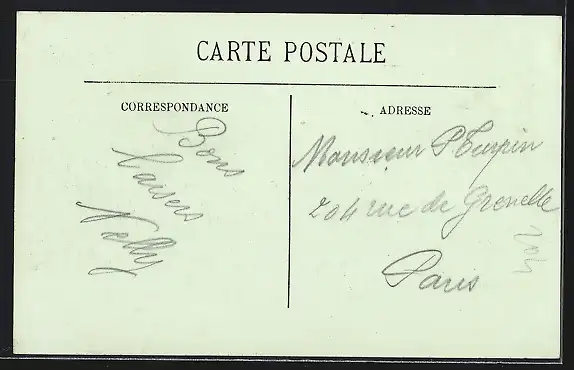 CARTE POSTALE
CORRESPONDANCE
Bons
baisers
Nelly
ADRESSE
Monsieur P Turpin
204 rue de Grenelle
204
Paris